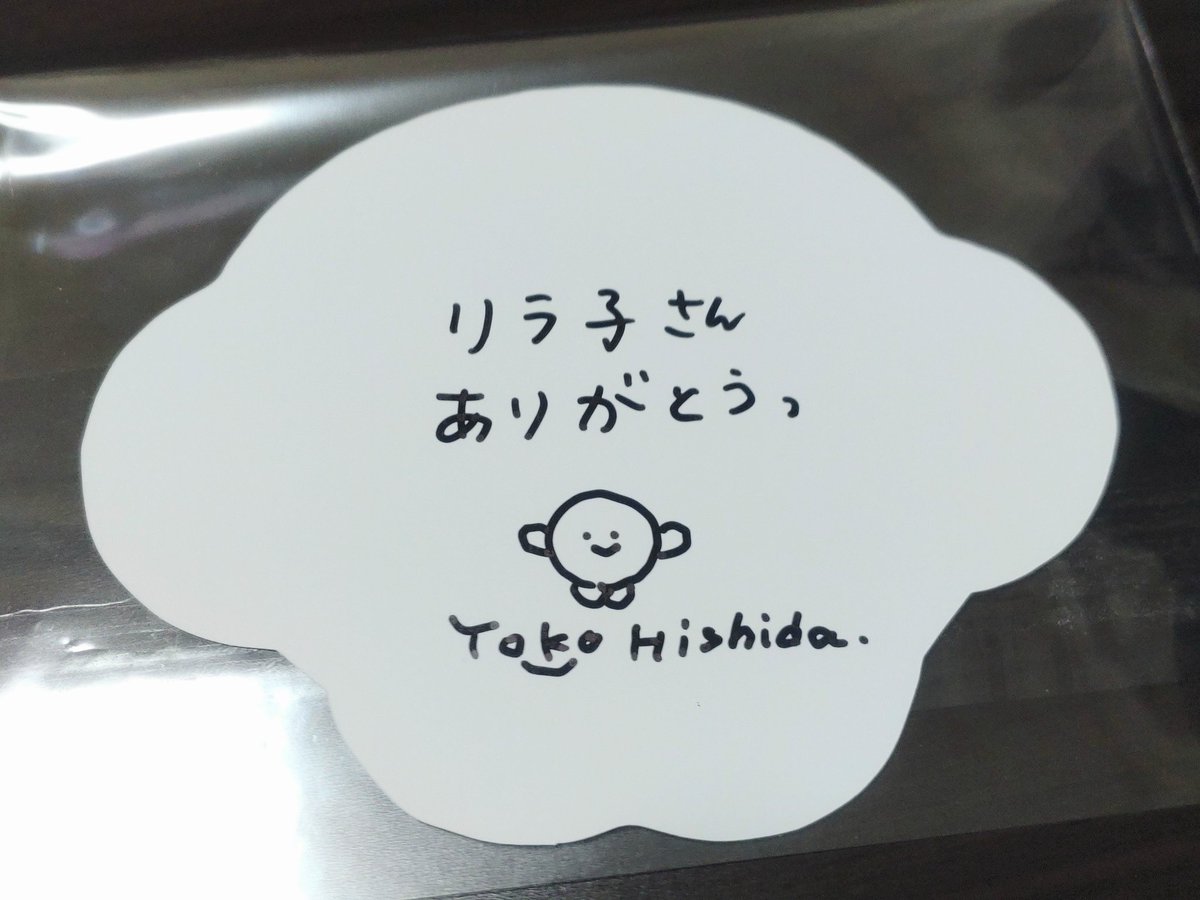 リラ子さん
ありがとうっ
Yoko Hishida.